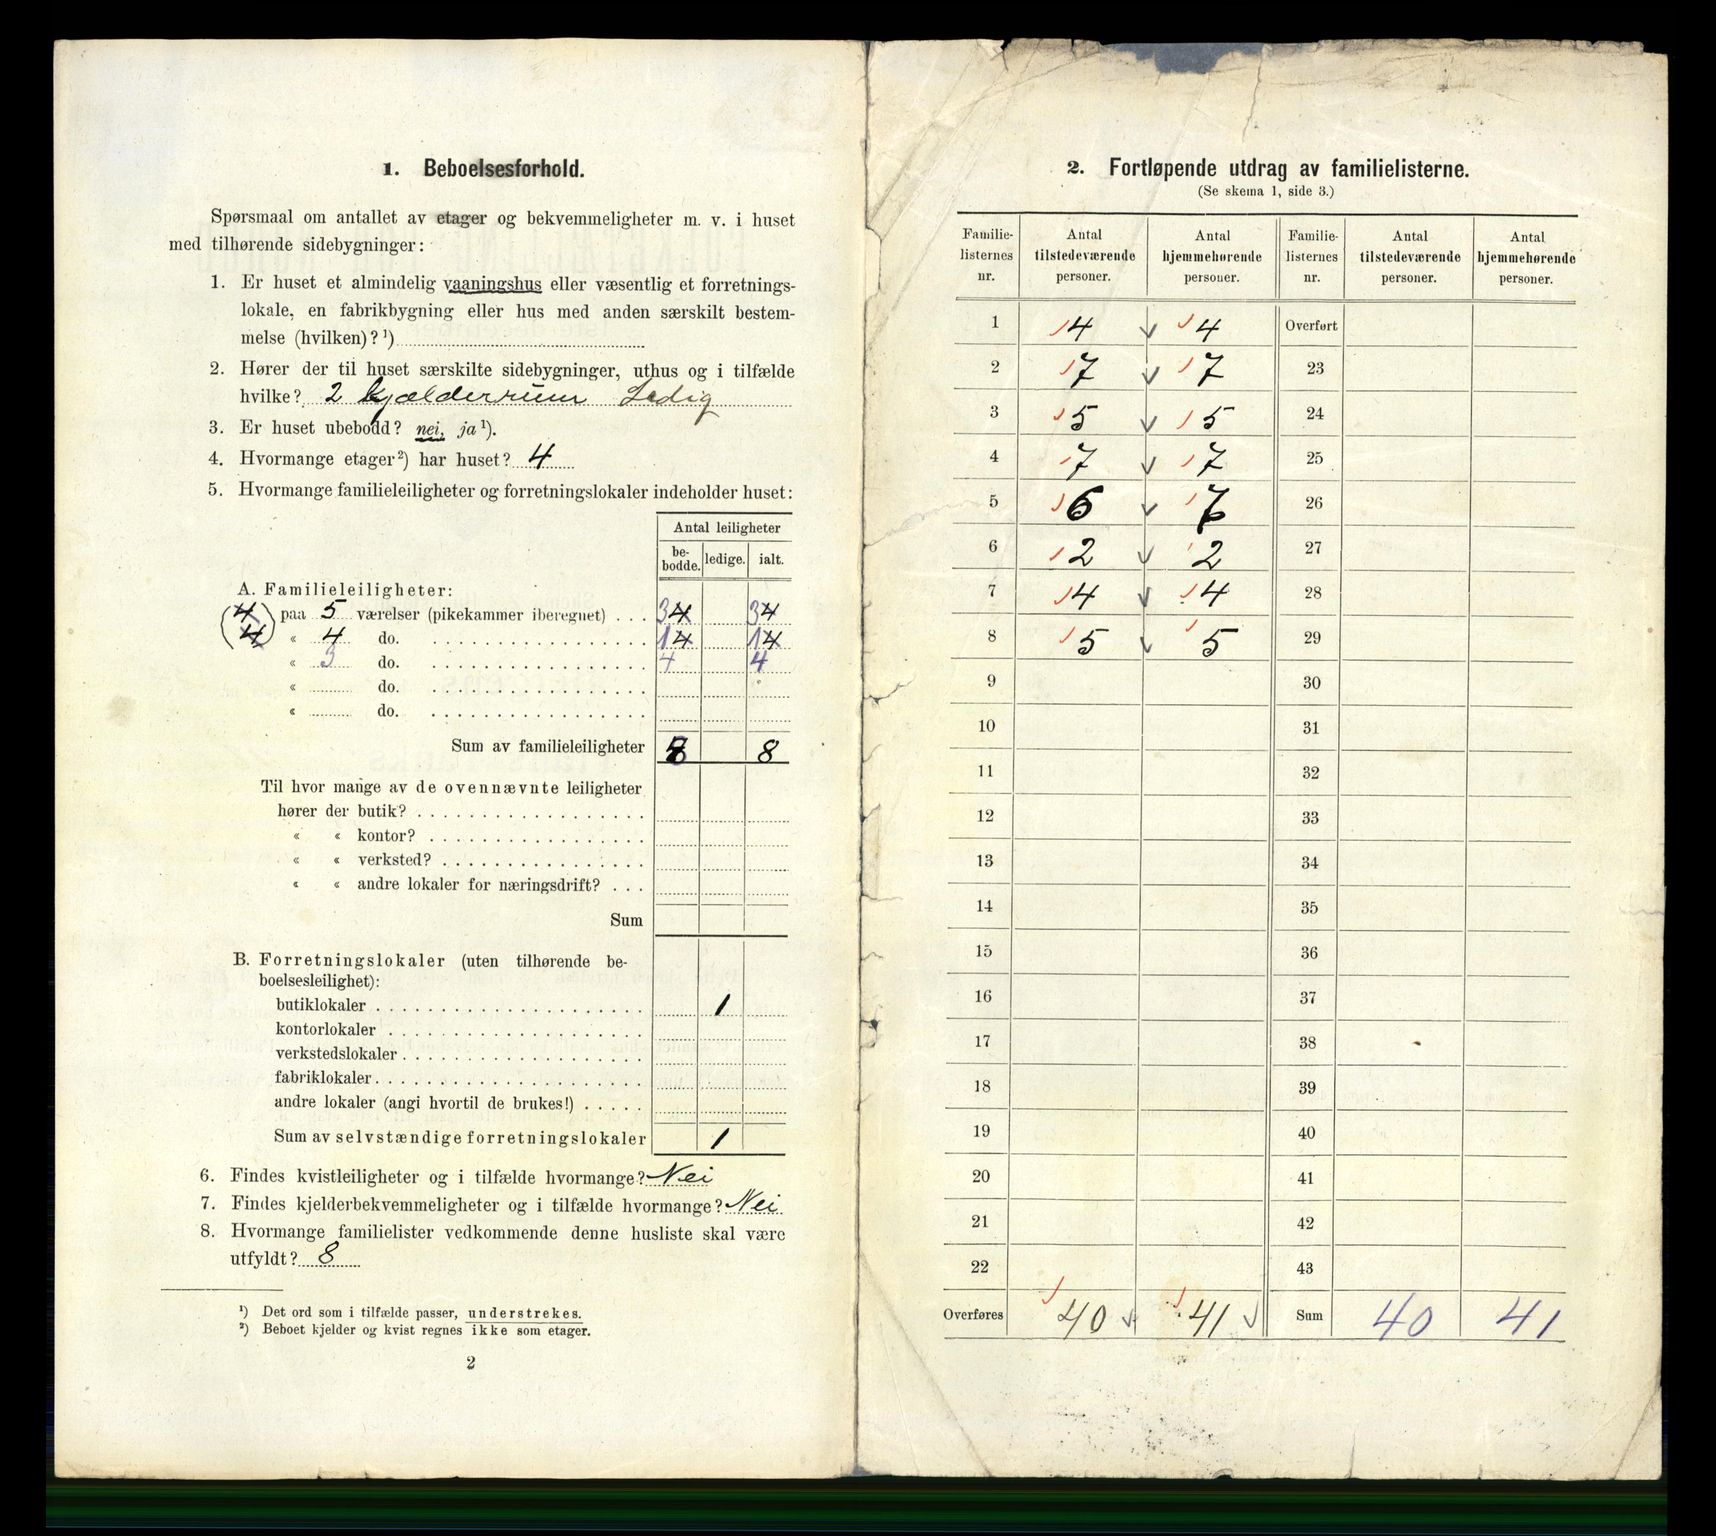 1. Beboelsesforhold.
Spørsmaal om antallet av etager og bekvemmeligheter m. v. i huset
med tilhørende sidebygninger:
1. Er huset et almindelig vaaningshus eller væsentlig et forretnings-
lokale, en fabrikbygning eller hus med anden særskilt bestem-
melse (hvilken)?¹)
2. Hører der til huset særskilte sidebygninger, uthus og i tilfælde
hvilke? 2 kjælderrum Ledig
3. Er huset ubebodd? nei, ja¹).
4. Hvormange etager²) har huset? 4
5. Hvormange familieleiligheter og forretningslokaler indeholder huset:
Antal leiligheter
be-bodde. ledige. ialt.
A. Familieleiligheter:
(4 paa 5 værelser (pikekammer iberegnet) . . . 34 34
4) « 4 do. 14 14
« 3 do. 4 4
« do.
« do.
Sum av familieleiligheter 8 8
Til hvor mange av de ovennævnte leiligheter
hører der butik?
« « kontor?
« « verksted?
« « andre lokaler for næringsdrift? . . .
Sum
B. Forretningslokaler (uten tilhørende be-
boelsesleilighet):
butiklokaler 1
kontorlokaler
verkstedslokaler
fabriklokaler
andre lokaler (angi hvortil de brukes!)
Sum av selvstændige forretningslokaler 1
6. Findes kvistleiligheter og i tilfælde hvormange? Nei
7. Findes kjelderbekvemmeligheter og i tilfælde hvormange? Nei
8. Hvormange familielister vedkommende denne husliste skal være
utfyldt? 8
¹) Det ord som i tilfælde passer, understrekes.
²) Beboet kjelder og kvist regnes ikke som etager.
2
2. Fortløpende utdrag av familielisterne.
(Se skema 1, side 3.)
Familie-listernes nr. Antal tilstedeværende personer. Antal hjemmehørende personer. Familie-listernes nr. Antal tilstedeværende personer. Antal hjemmehørende personer.
1 4 4 Overført
2 7 7 23
3 5 5 24
4 7 7 25
5 6 7 26
6 2 2 27
7 4 4 28
8 5 5 29
9 30
10 31
11 32
12 33
13 34
14 35
15 36
16 37
17 38
18 39
19 40
20 41
21 42
22 43
Overføres 40 41 Sum 40 41